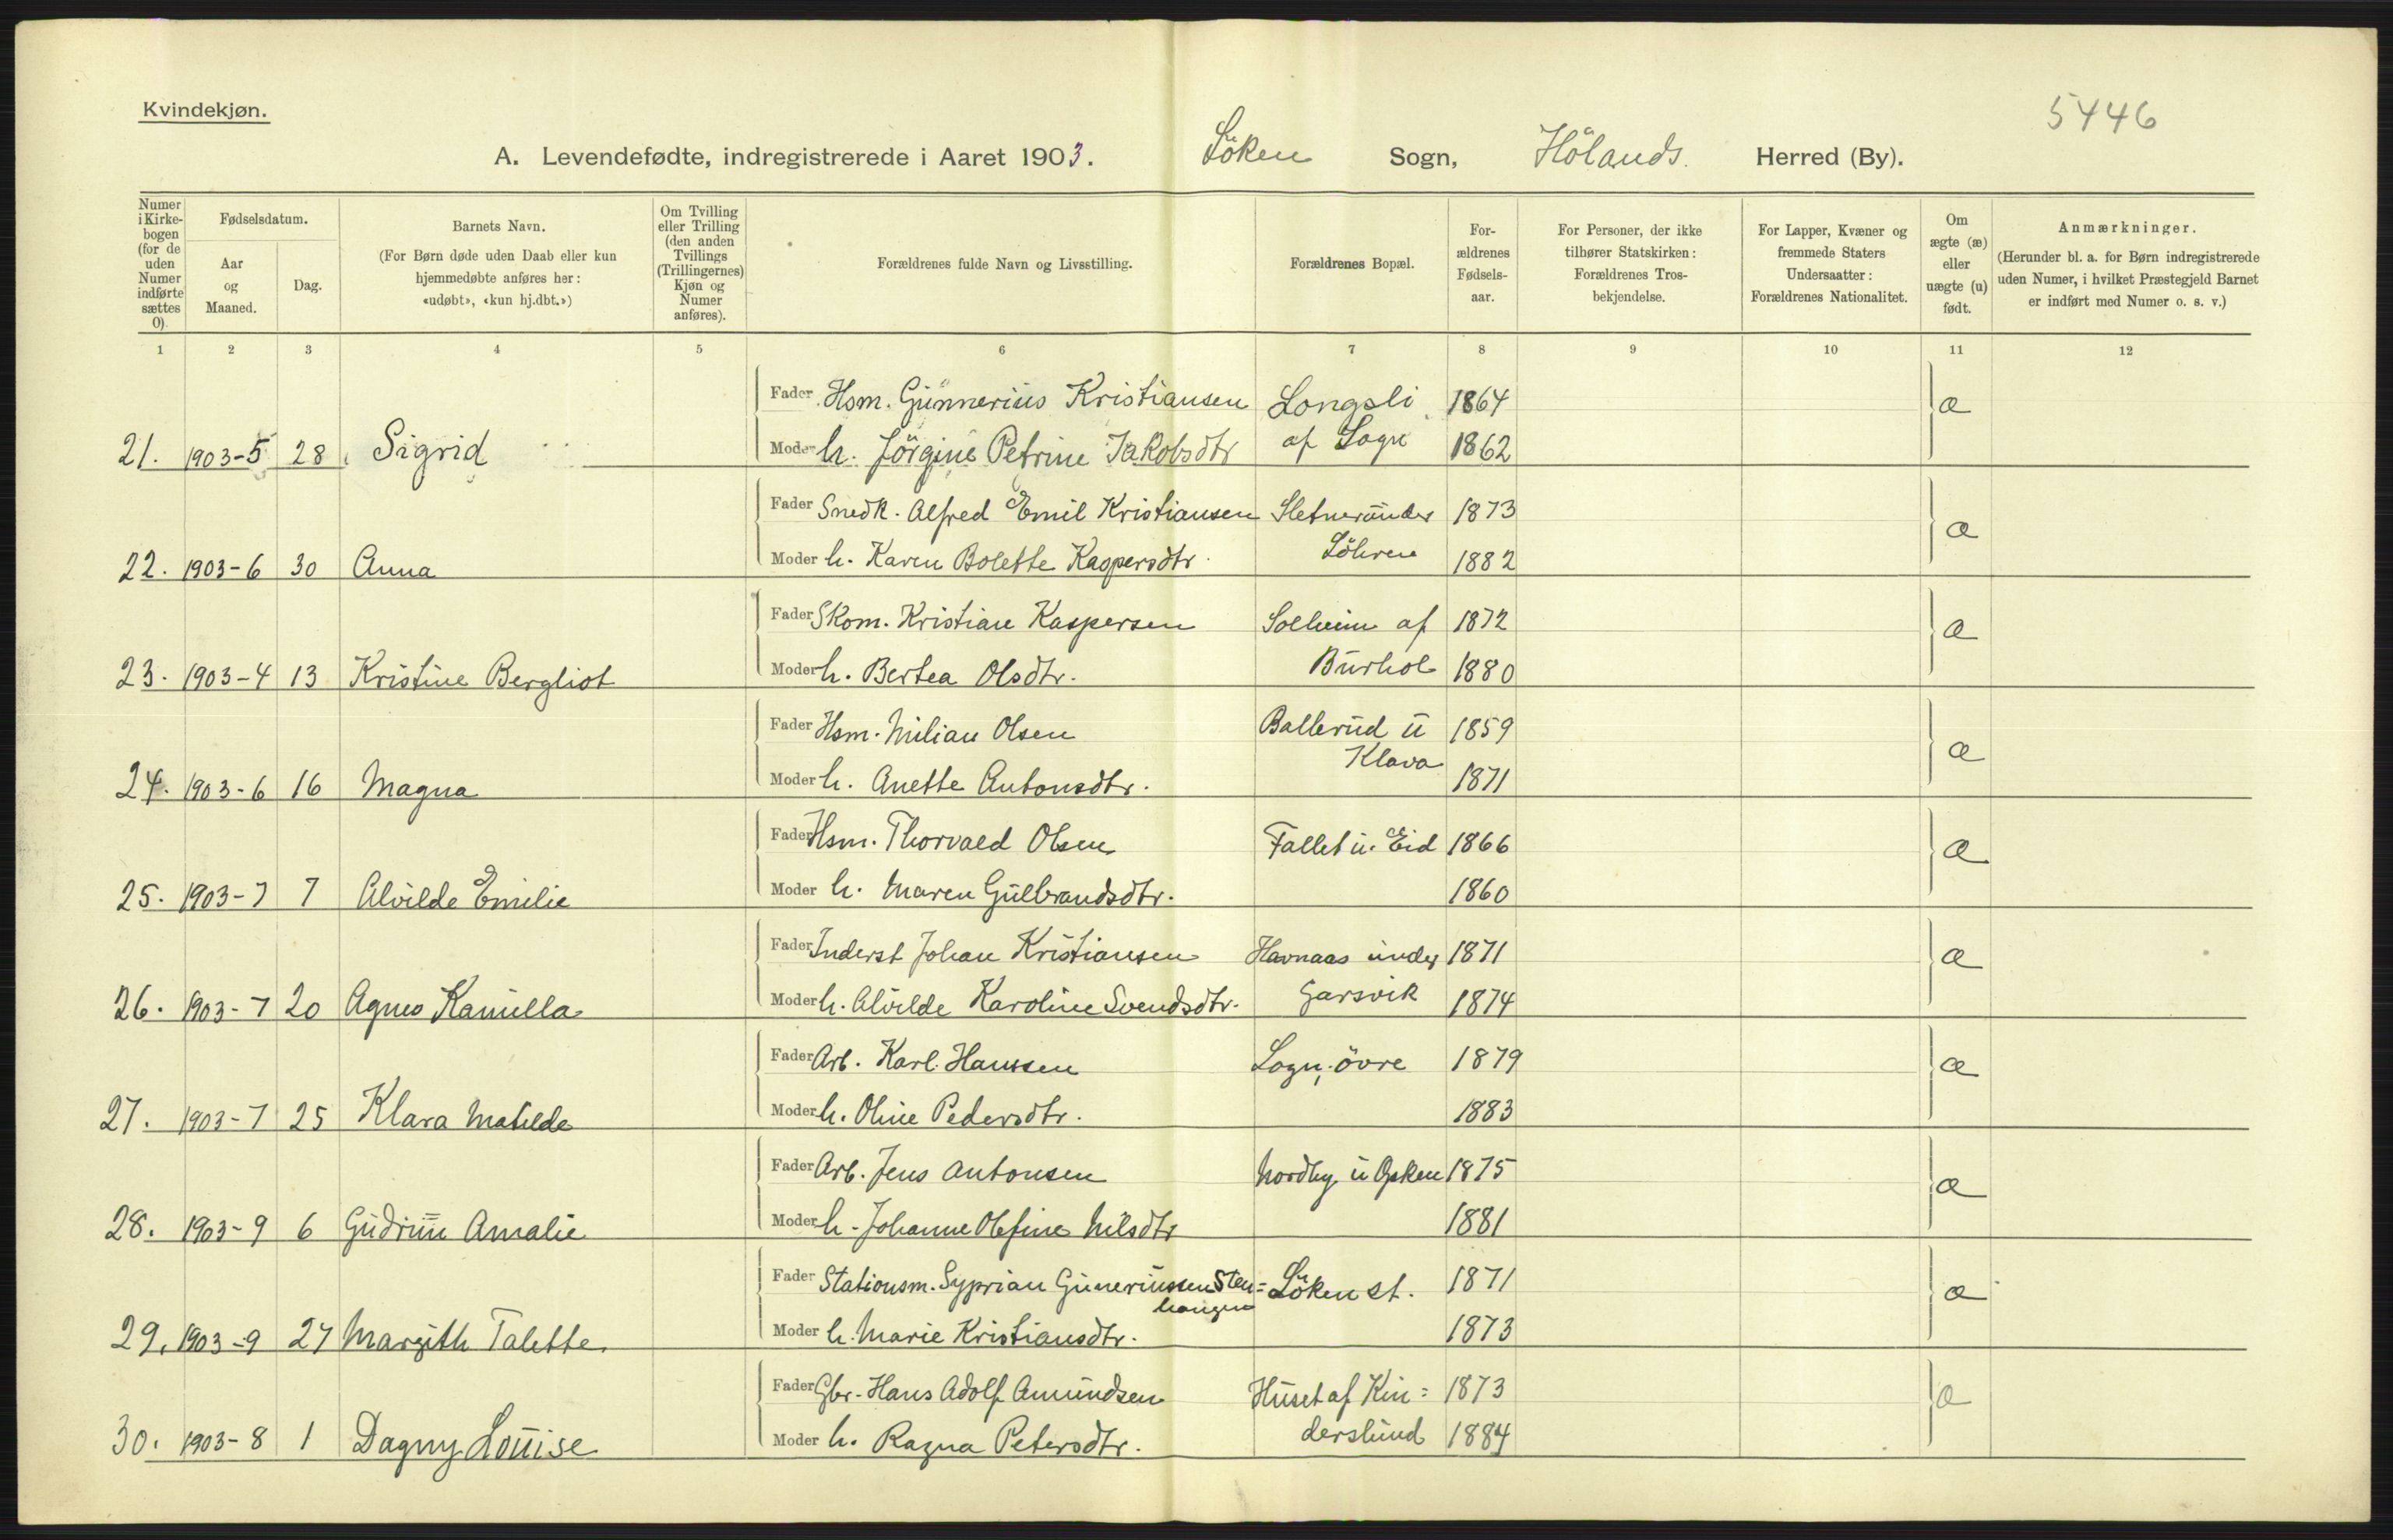 5446
Kvindekjøn.
A. Levendefødte, indregistrerede i Aaret 1903. Löken Sogn, Hölands. Herred (By).
Numer i Kirkebogen (for de uden Numer indførte sættes 0).
Fødselsdatum.
Aar og Maaned.
Dag.
Barnets Navn.
(For Børn døde uden Daab eller kun hjemmedøbte anføres her: «udøbt», «kun hj.dbt.»)
Om Tvilling eller Trilling (den anden Tvillings (Trillingernes) Kjøn og Numer anføres).
Forældrenes fulde Navn og Livsstilling.
Forældrenes Bopæl.
Forældrenes Fødselsaar.
For Personer, der ikke tilhører Statskirken: Forældrenes Trosbekjendelse.
For Lapper, Kvæner og fremmede Staters Undersaatter: Forældrenes Nationalitet.
Om ægte (æ) eller uægte (u) født.
Anmærkninger.
(Herunder bl. a. for Børn indregistrerede uden Numer, i hvilket Præstegjeld Barnet er indført med Numer o. s. v.)
1 2 3 4 5 6 7 8 9 10 11 12
Fader Hsm. Gunnerius Kristiansen Longsli 1864 æ
21. 1903-5 28 Sigrid Moder h. Jörgine Petrine Jakobsdtr af Sogn 1862
Fader Snedk. Alfred Emil Kristiansen Sletner under 1873 æ
22. 1903-6 30 Anna Moder h. Karen Bolette Kaspersdtr. Löhren 1882
Fader Skom. Kristian Kaspersen Solheim af 1872 æ
23. 1903-4 13 Kristine Bergliot Moder h. Bertea Olsdtr. Burhol 1880
Fader Hsm. Milian Olsen Ballerud u 1859 æ
Klava
24. 1903-6 16 Magna Moder h. Anette Antonsdtr. 1871
Fader Hsm. Thorvald Olsen Fallet u. Eid 1866 æ
25. 1903-7 7 Alvilde Emilie Moder h. Maren Gulbrandsdtr. 1860
Fader Inderst Johan Kristiansen Havnaas under 1871 æ
26. 1903-7 20 Agnes Kamilla Moder h. Alvilde Karoline Svendsdtr. Garsvik 1874
Fader Arb. Karl Hanssen Sogn, övre 1879 æ
27. 1903-7 25 Klara Matilde Moder h. Oline Pedersdtr. 1883
Fader Arb. Jens Antonsen Nordby u Opken 1875 æ
28. 1903-9 6 Gudrun Amalie Moder h. Johanne Olefine Nilsdtr 1881
Fader Stationsm. Syprian Gunerinssen Sten= Löken st. 1871 æ
haugen
29. 1903-9 27 Margith Talette Moder h. Marie Kristiansdtr. 1873
Fader Gbr. Hans Adolf Amundsen Huset af Kin= 1873 æ
30. 1903-8 1 Dagny Louise Moder h. Ragna Petersdtr. derslund 1884